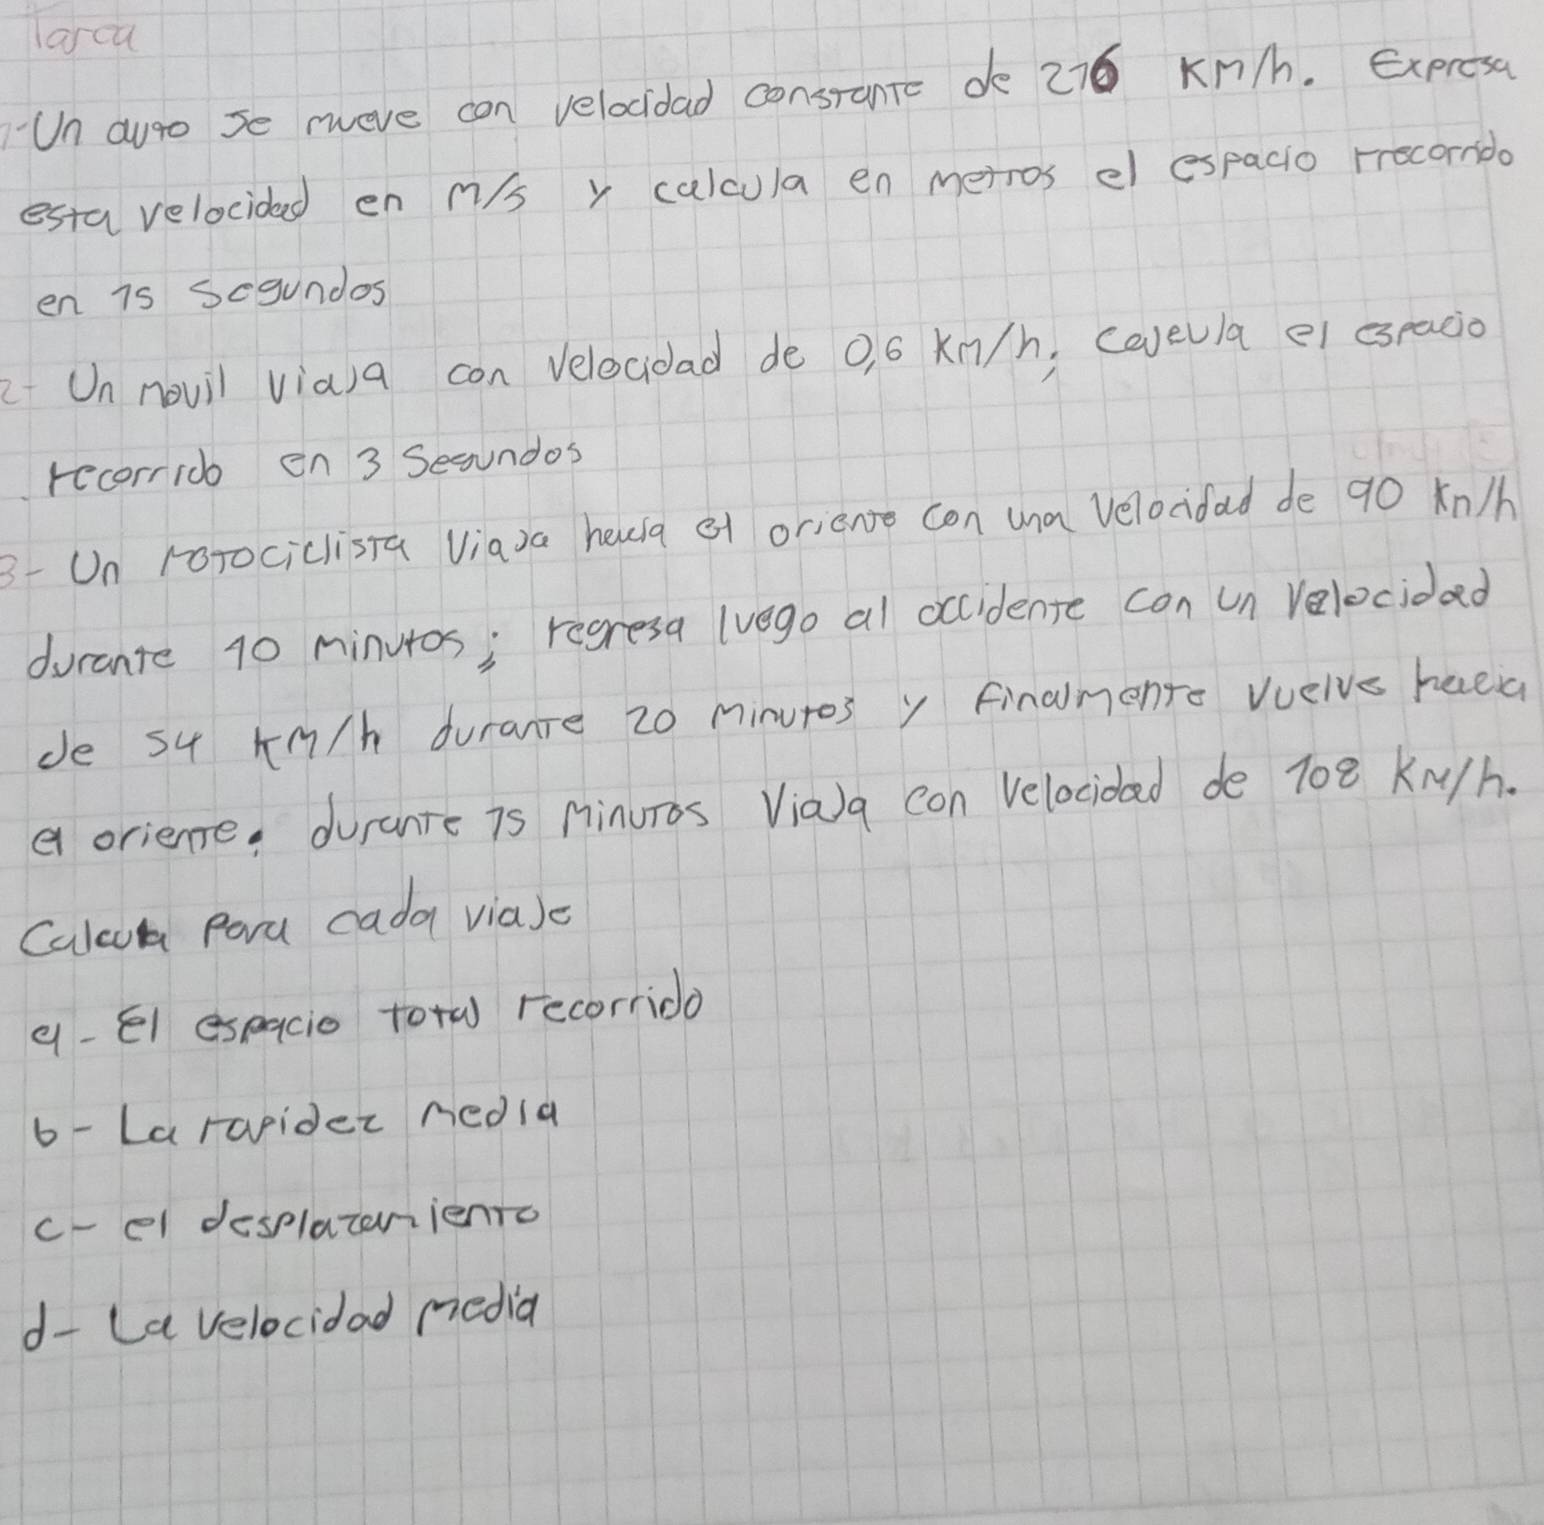 Tarea
1- Un auto se mueve con velocidad constante de 216 Km/h. Expresa
esta velocidad en m/s y calcula en metros el espacio rrecorrido
en 15 segundos
2- Un movil viaja con velocidad de 0,6 Km/h; calcula el espacio
recorrido en 3 Segundos
3- Un motociclista viaja hacia el oriente con una velocidad de 90 Km/h
durante 10 minutos; regresa luego al occidente con un velocidad
de 54 Km/h durante 20 minutos y finalmente vuelve hacia
el oriente. durante 15 minutos viaja con velocidad de 108 Km/h.
Calcula para cada viaje
a- El espacio total recorrido
b- La rapidez media
c- el desplazamiento
d- La velocidad media